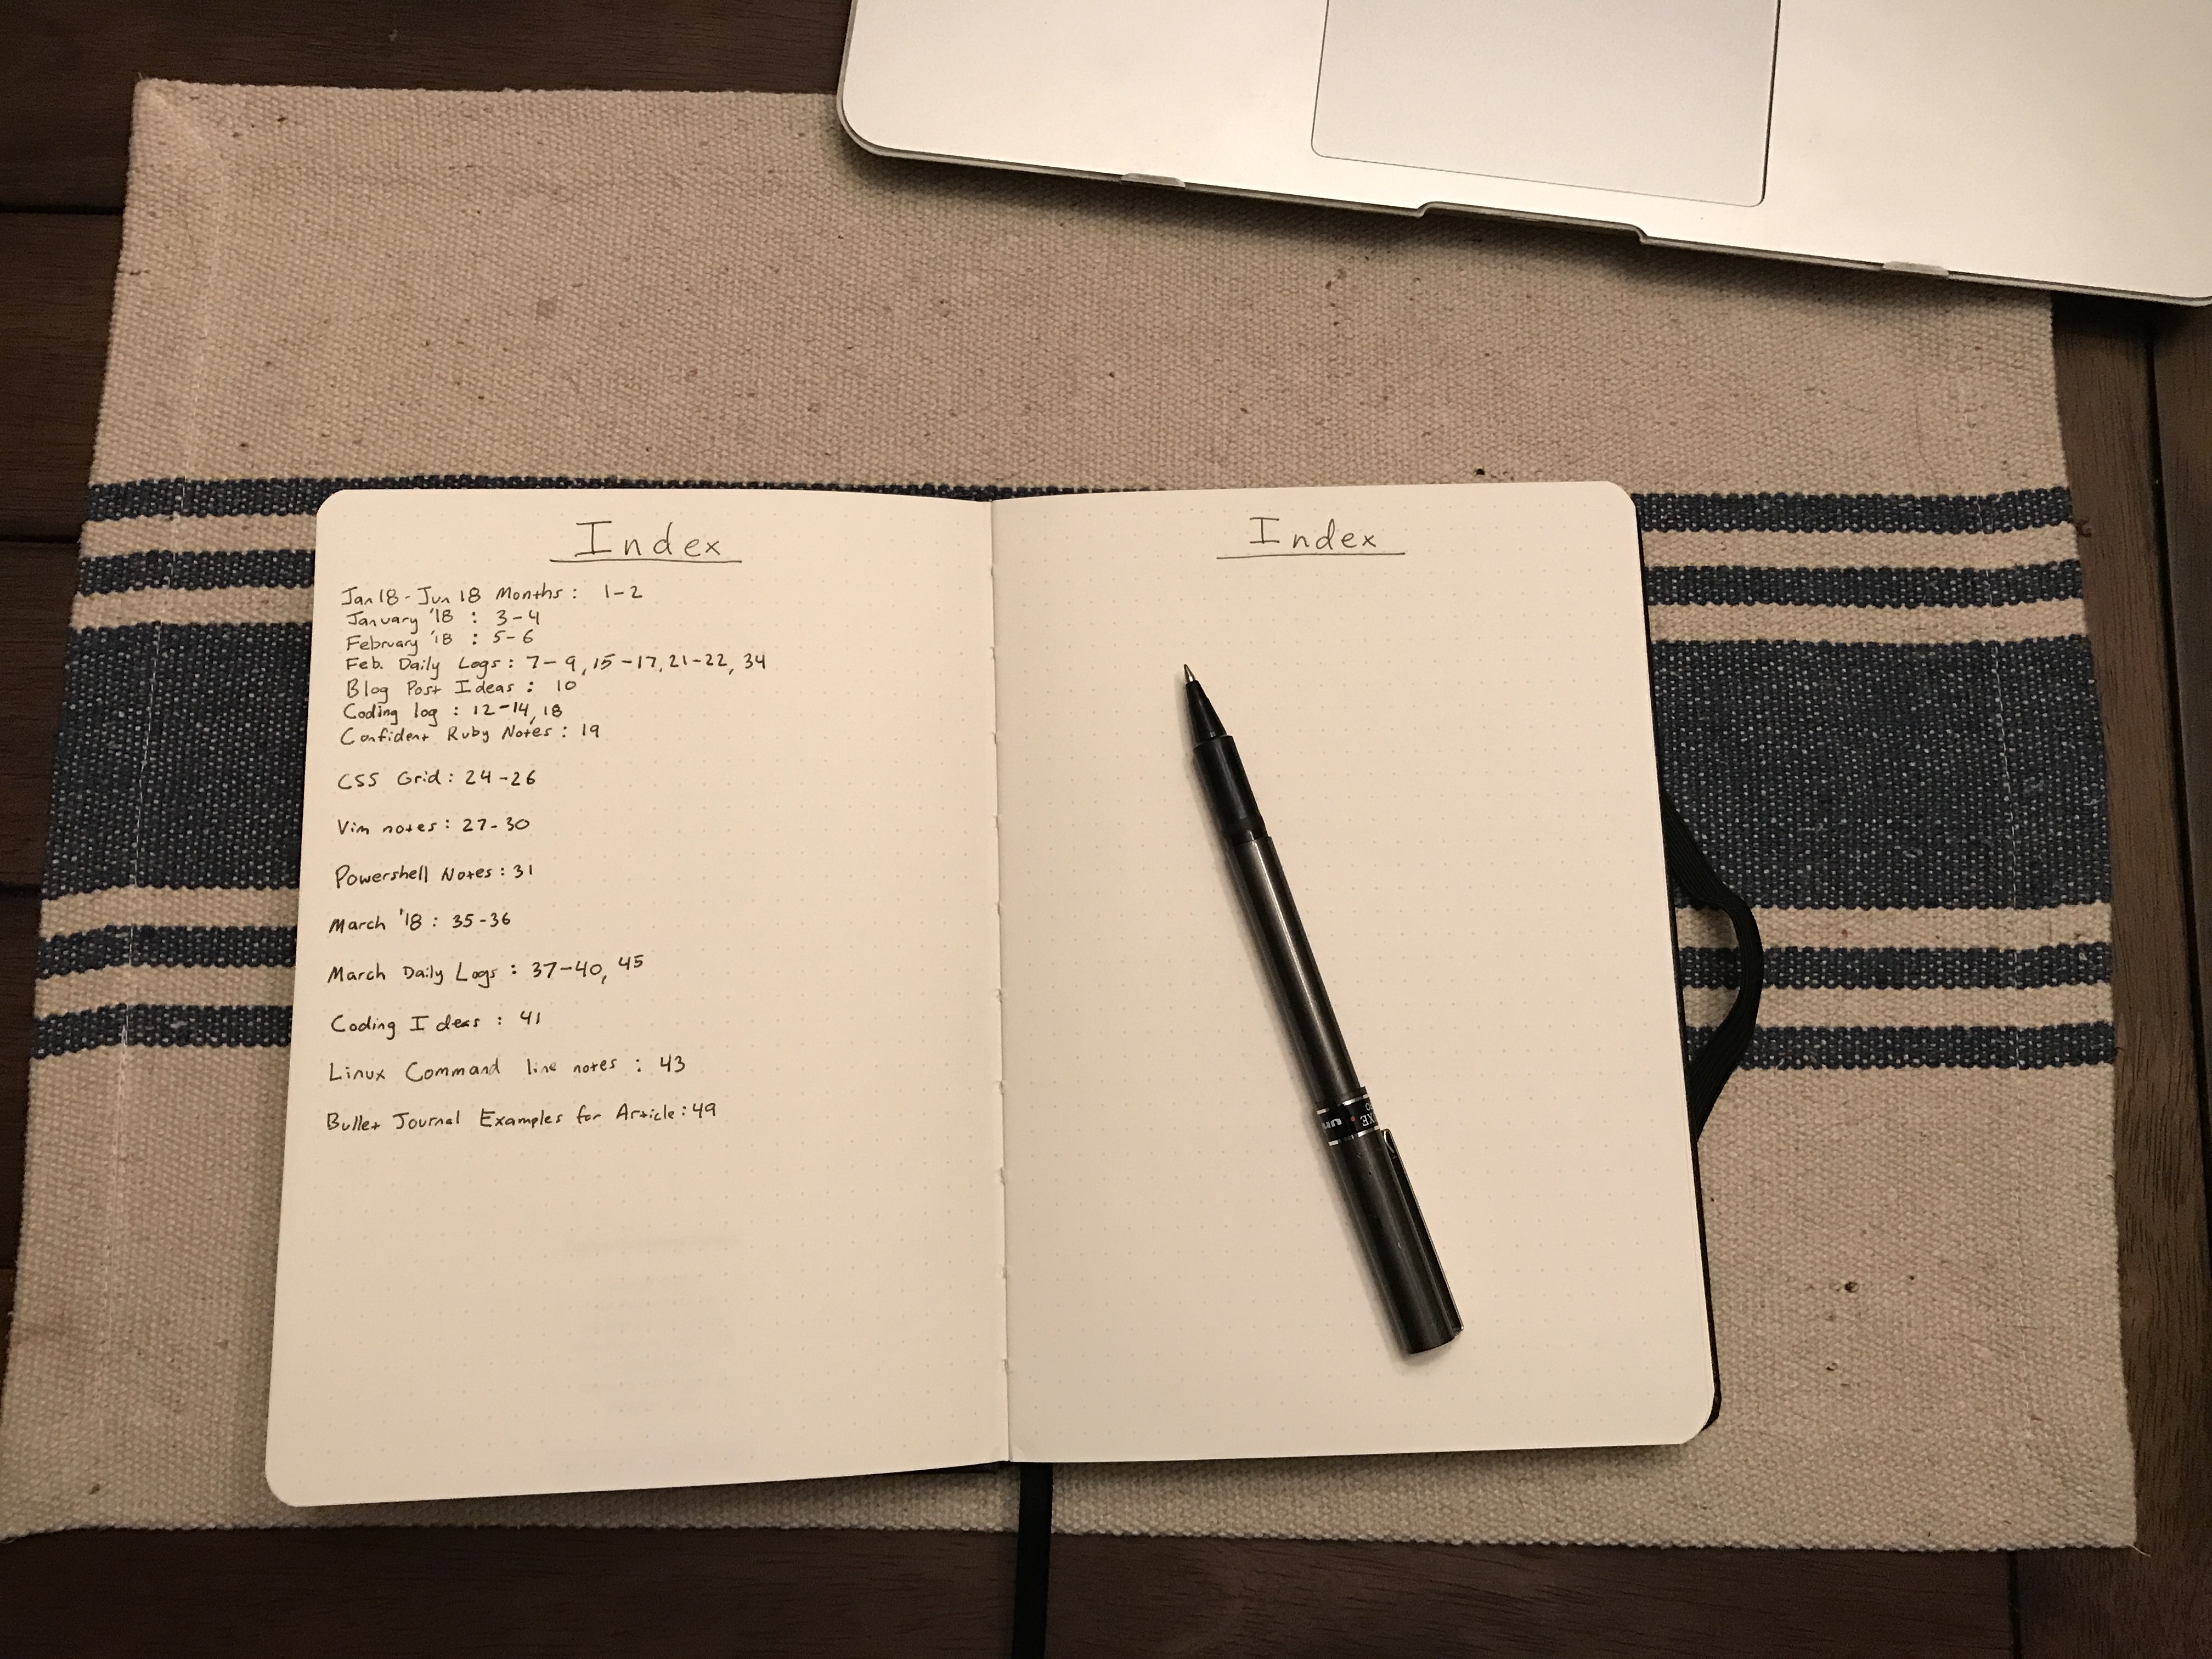 Index
Jan 18 - Jun 18 Months : 1-2
January '18 : 3-4
February '18 : 5-6
Feb. Daily Logs : 7-9, 15-17, 21-22, 34
Blog Post Ideas : 10
Coding log : 12-14, 18
Confident Ruby Notes : 19
CSS Grid : 24-26
Vim notes : 27-30
Powershell Notes : 31
March '18 : 35-36
March Daily Logs : 37-40, 45
Coding Ideas : 41
Linux Command line notes : 43
Bullet Journal Examples for Article : 49
Index